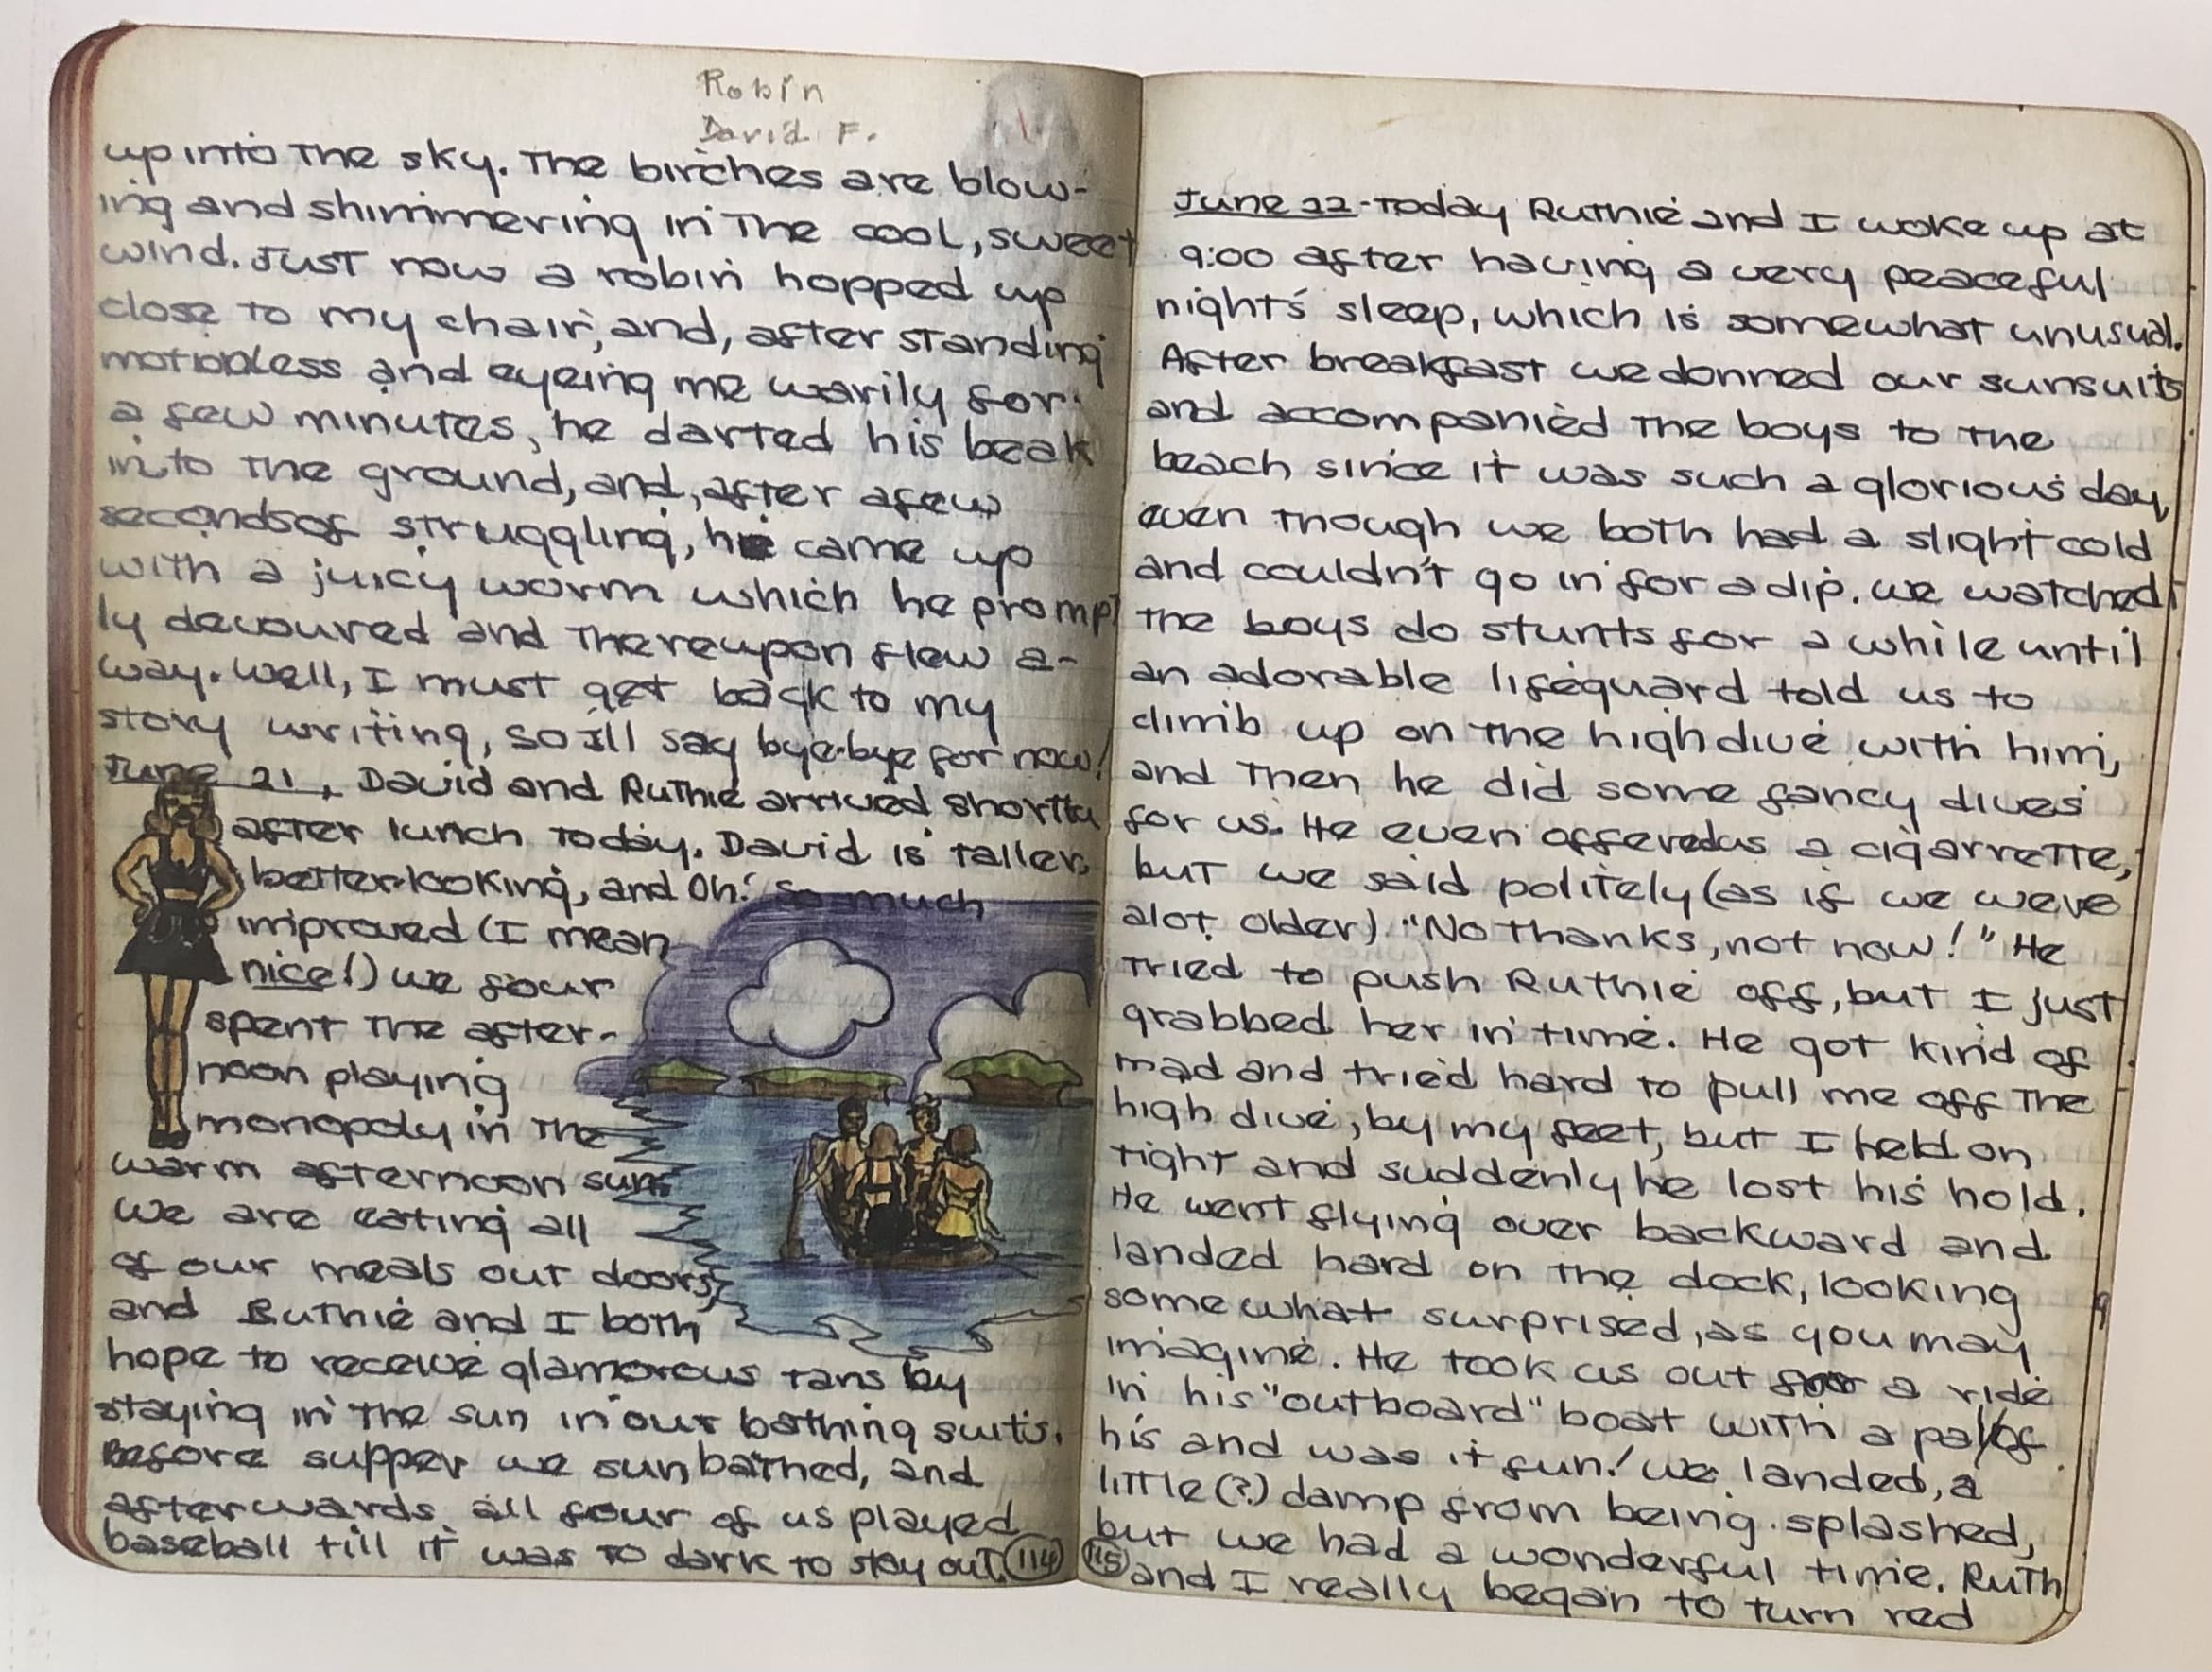 Robin
David F.
up into the sky. The birches are blow-
ing and shimmering in the cool, sweet
wind. Just now a robin hopped up
close to my chair, and, after standing
motionless and eyeing me warily for
a few minutes, he darted his beak
into the ground, and, after a few
seconds of struggling, he came up
with a juicy worm which he prompt
ly devoured and thereupon flew a-
way. Well, I must get back to my
story writing, so I'll say bye-bye for now!
June 21, David and Ruthie arrived shortly
after lunch today. David is taller,
better-looking, and Oh! so much
improved (I mean
nice!) we four
spent the after-
noon playing
monopoly in the
warm afternoon sun.
We are eating all
of our meals out doors,
and Ruthie and I both
hope to receive glamorous tans by
staying in the sun in our bathing suits.
Before supper we sunbathed, and
afterwards all four of us played
baseball till it was to dark to stay out. 114
June 22-Today Ruthie and I woke up at
9:00 after having a very peaceful
night's sleep, which is somewhat unusual.
After breakfast we donned our sunsuits
and accompanied the boys to the
beach since it was such a glorious day,
even though we both had a slight cold
and couldn't go in for a dip. We watched
the boys do stunts for a while until
an adorable lifeguard told us to
climb up on the high dive with him,
and then he did some fancy dives
for us. He even offered us a cigarrette,
but we said politely (as if we were
alot older) "No thanks, not now!" He
tried to push Ruthie off, but I just
grabbed her in time. He got kind of
mad and tried hard to pull me off the
high dive, by my feet, but I held on
tight and suddenly he lost his hold.
He went flying over backward and
landed hard on the dock, looking
somewhat surprised, as you may
imagine. He took us out for a ride
in his "outboard" boat with a pal of
his and was it fun! We landed, a
little (?) damp from being splashed,
but we had a wonderful time. Ruth
115 and I really began to turn red